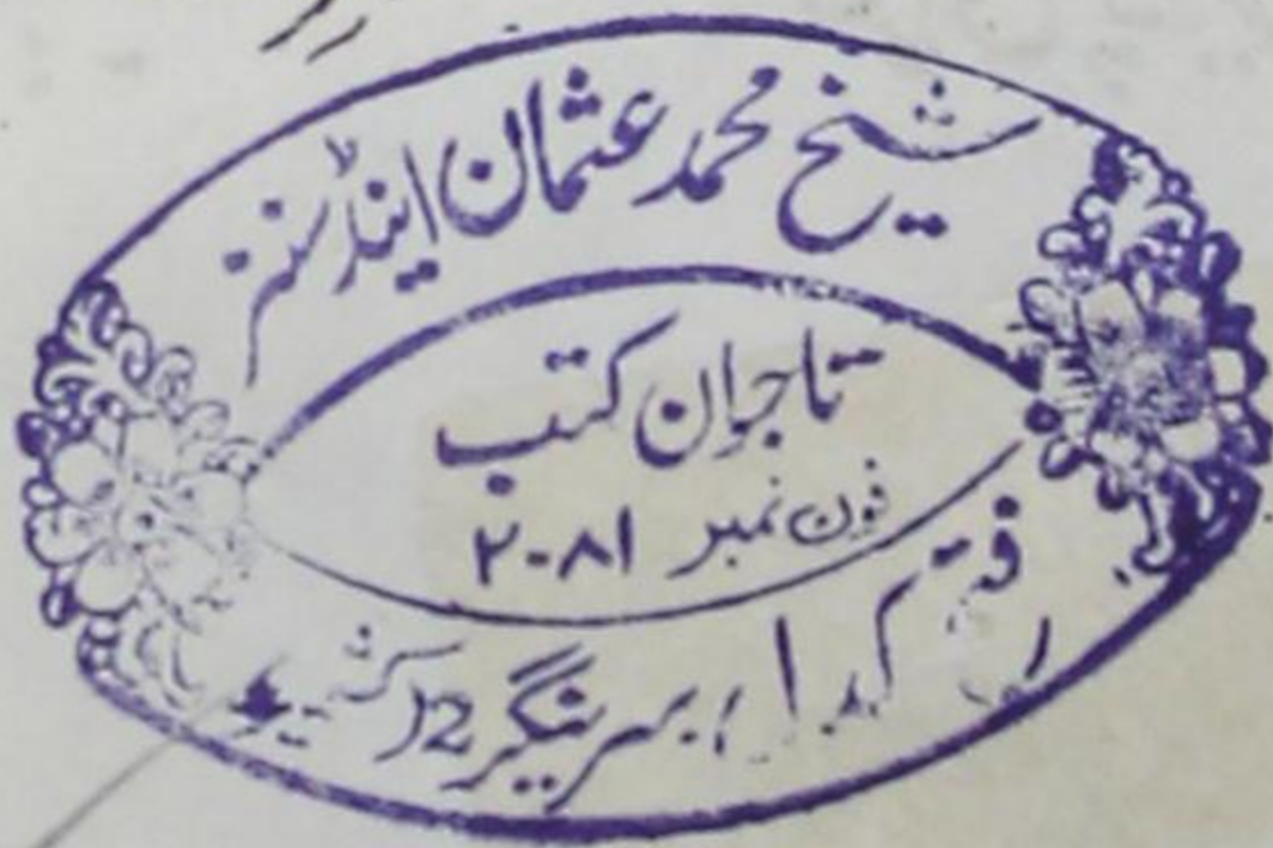 شیخ محمد عثمان اینڈ سنز
تاجران کتب
فون نمبر ۲۰۸۱
سرینگر 2 (کشمیر